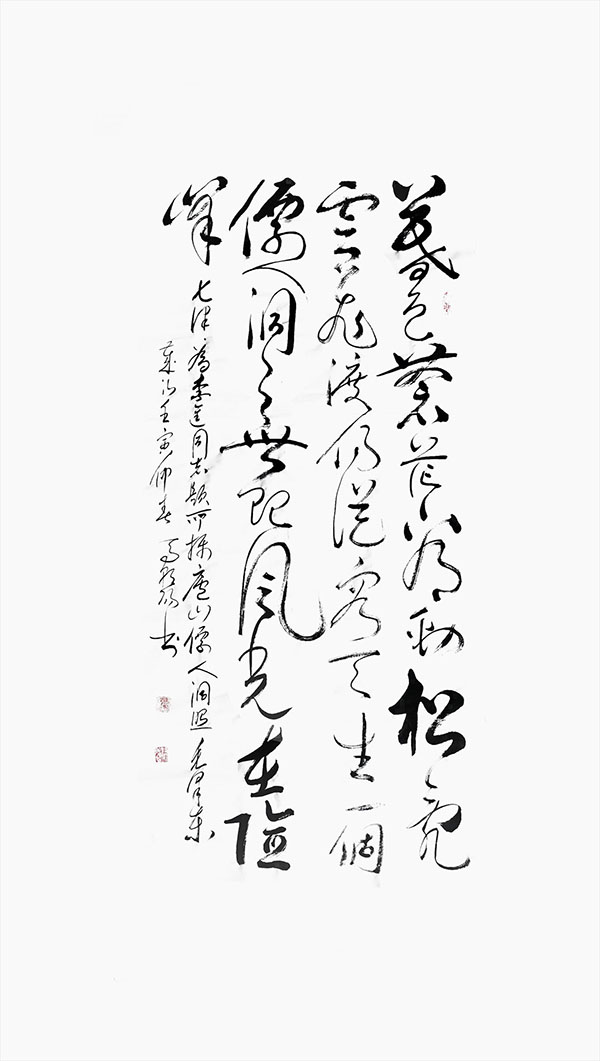 暮色蒼茫看勁松亂
雲飛渡仍從容天生一個
僊人洞無限風光在險
峰
七律 為李進同志題所攝廬山僊人洞照 毛澤東
歲次壬寅仲春 書